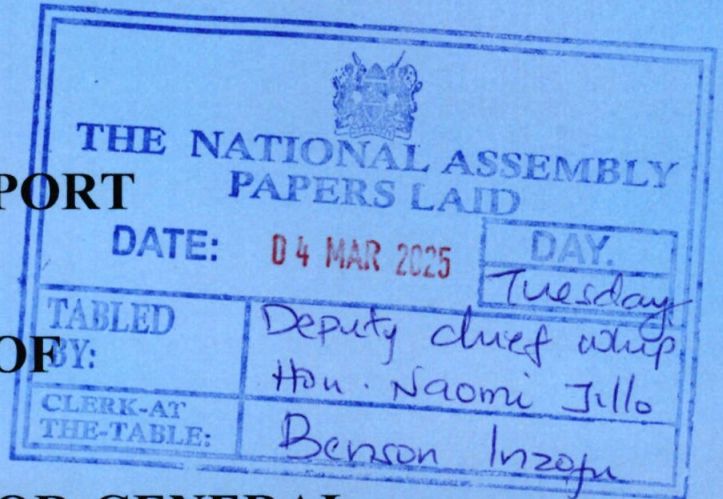 THE NATIONAL ASSEMBLY
PAPERS LAID
PORT
DATE: 04 MAR 2025 DAY.
Tuesday
TABLED BY: Deputy chief whip
Hon. Naomi Jillo
OF
CLERK-AT THE-TABLE: Benson Inzofu
OR-GENERAL